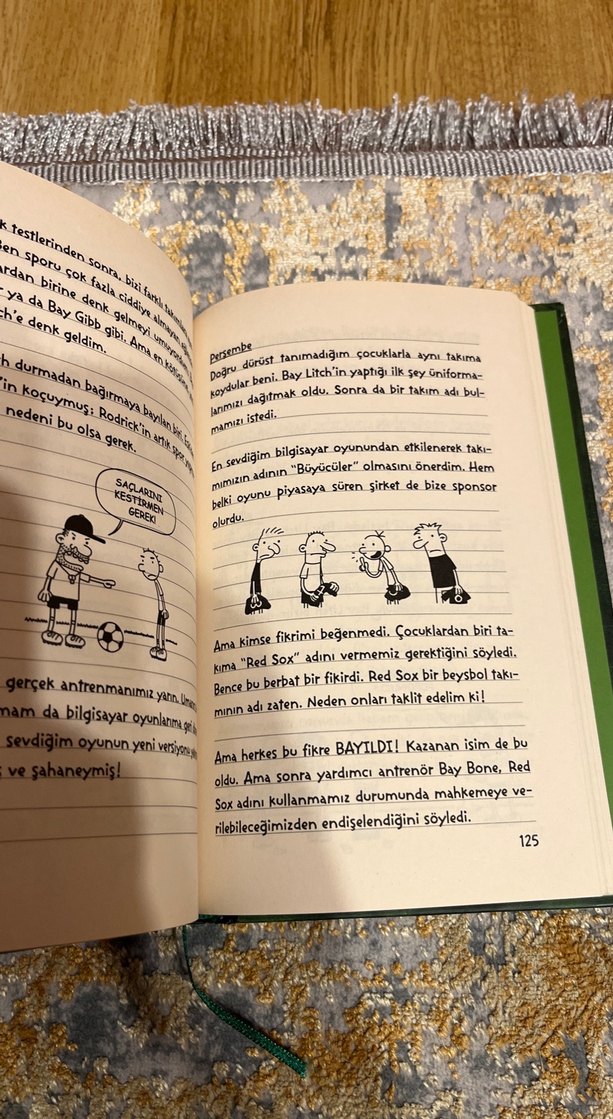 k testlerinden sonra, bizi farklı
Ben sporu çok fazla ciddiye almayan
ardan birine denk gelmeyi umuyordum
ya da Bay Gibb gibi. Ama en
denk geldim.
durmadan bağırmaya bayılan biri.
in koçuymuş; Rodrick'in artık spor
nedeni bu olsa gerek.
SAÇLARINI
KESTİRMEN
GEREK!
gerçek antrenmanımız yarın.
mam da bilgisayar oyunlarıma geri
sevdiğim oyunun yeni versiyonu
ve şahaneymiş!
Perşembe
Doğru dürüst tanımadığım çocuklarla aynı takıma
koydular beni. Bay Litch'in yaptığı ilk şey üniforma-
larımızı dağıtmak oldu. Sonra da bir takım adı bul-
mamızı istedi.
En sevdiğim bilgisayar oyunundan etkilenerek takı-
mımızın adının "Büyücüler" olmasını önerdim. Hem
belki oyunu piyasaya süren şirket de bize sponsor
olurdu.
Ama kimse fikrimi beğenmedi. Çocuklardan biri ta-
kıma "Red Sox" adını vermemiz gerektiğini söyledi.
Bence bu berbat bir fikirdi. Red Sox bir beysbol takı-
mının adı zaten. Neden onları taklit edelim ki!
Ama herkes bu fikre BAYILDI! Kazanan isim de bu
oldu. Ama sonra yardımcı antrenör Bay Bone, Red
Sox adını kullanmamız durumunda mahkemeye ve-
rilebileceğimizden endişelendiğini söyledi.
125